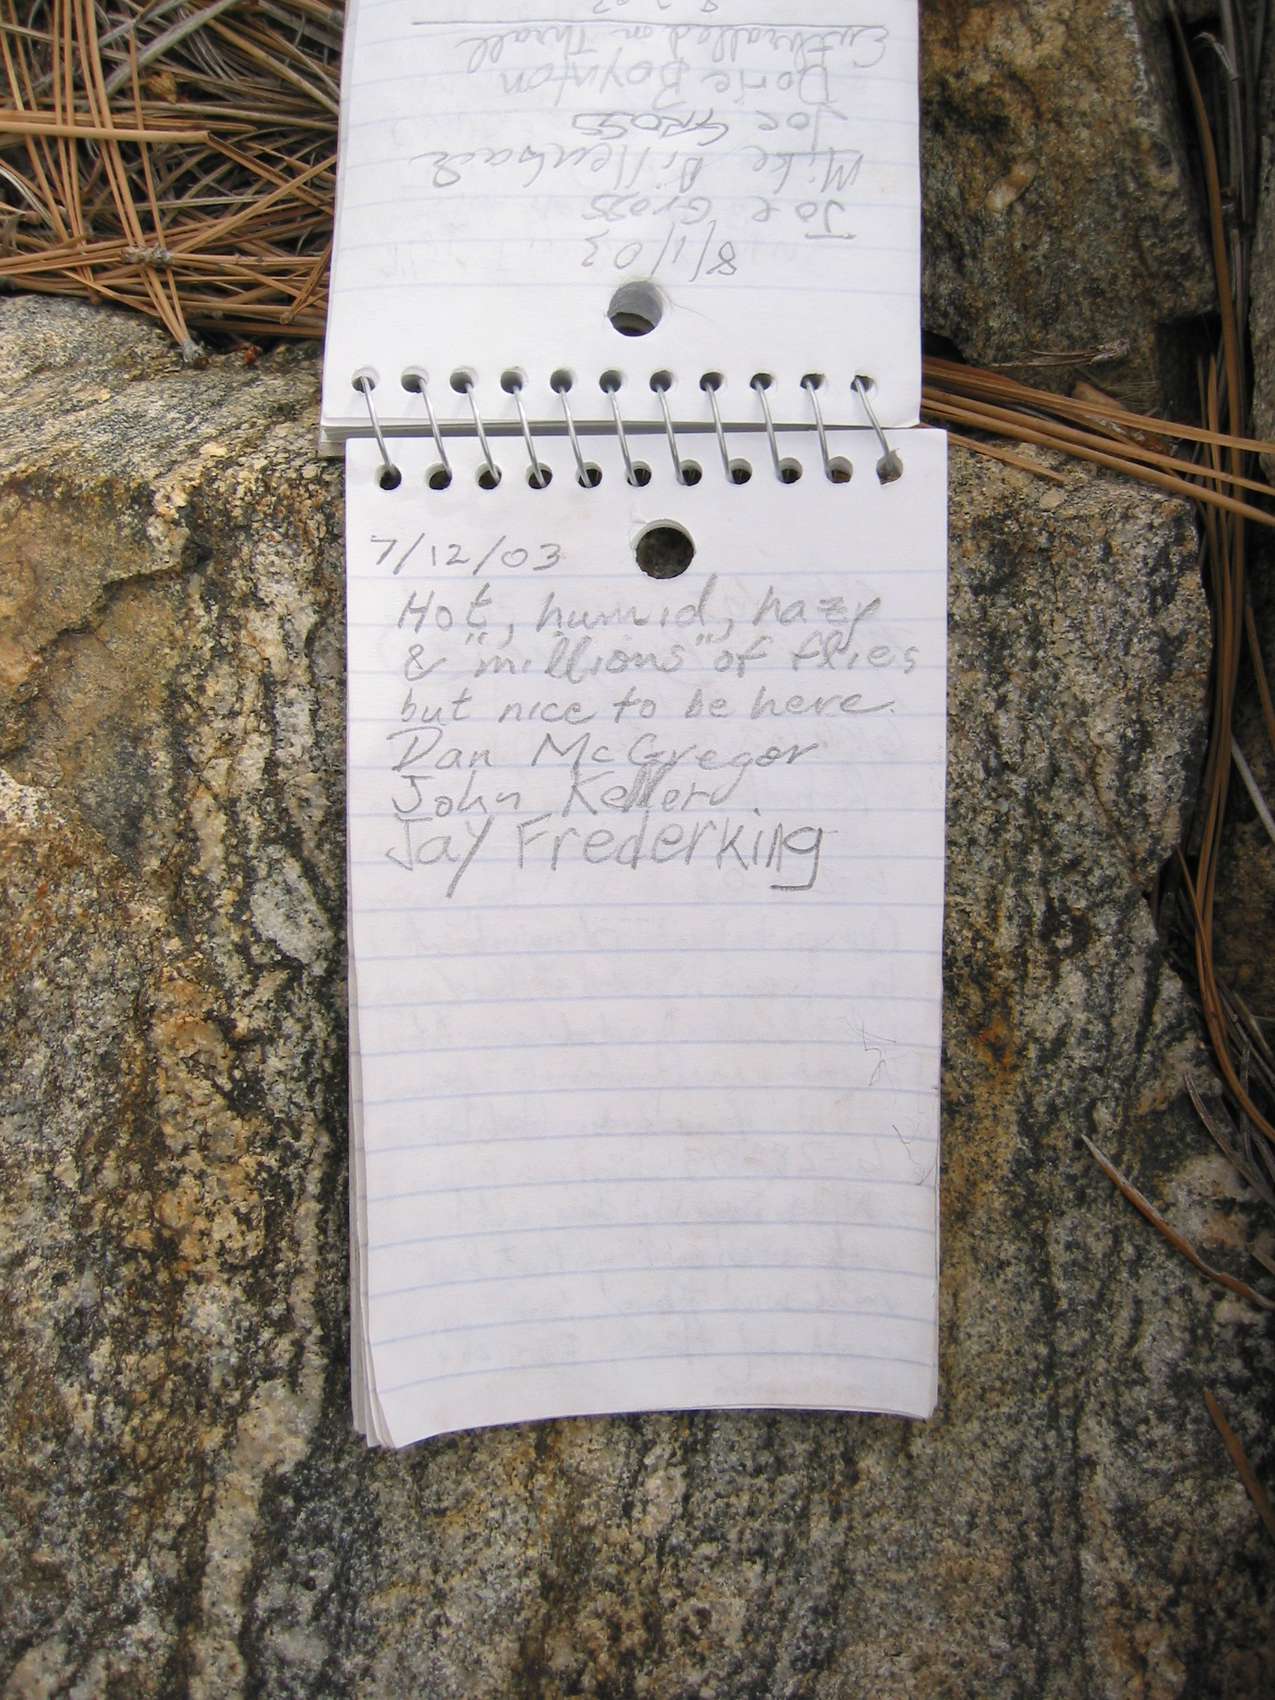 7/12/03
Hot, humid, hazy
& "millions" of flies
but nice to be here.
Dan McGregor
John Keller
Jay Frederking
8/1/03
Joe Gross
Mike
Joe GROSS
Dorie Boynton
Enthralled on Thrall